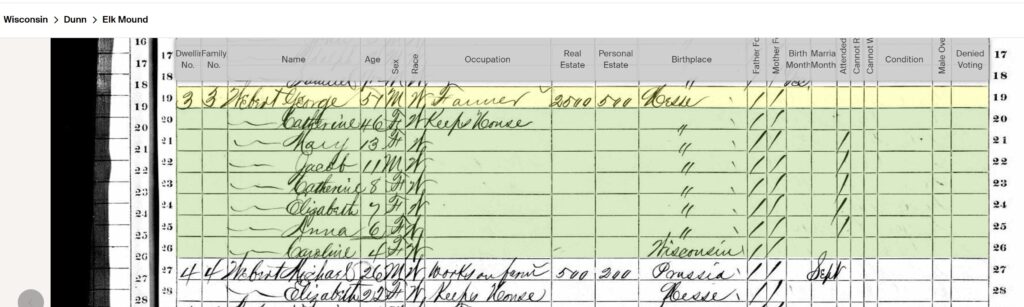 Wisconsin > Dunn > Elk Mound
Dwelli No. Family No. Name Age Sex Race Occupation Real Estate Personal Estate Birthplace Father Fo Mother Fo Birth Month Marria Month Attended Cannot R Cannot W Condition Male Ove Denied Voting
16
17 17
18 18
19 3 3 George 51 M W Farmer 2500 500 Hesse / / 19
20 — Catherine 46 F W Keeps House " / / 20
21 — Mary 13 F W " / / / 21
22 — Jacob 11 M W " / / / 22
23 — Catherine 8 F W " / / / 23
24 — Elizabeth 7 F W " / / / 24
25 — Anna 6 F W " / / / 25
26 — Caroline 4 F W Wisconsin / / 26
27 4 4 Michael 26 M W Works on farm 500 200 Prussia / / Sept 27
28 — Elizabeth 22 F W Keeps House Hesse / / 28